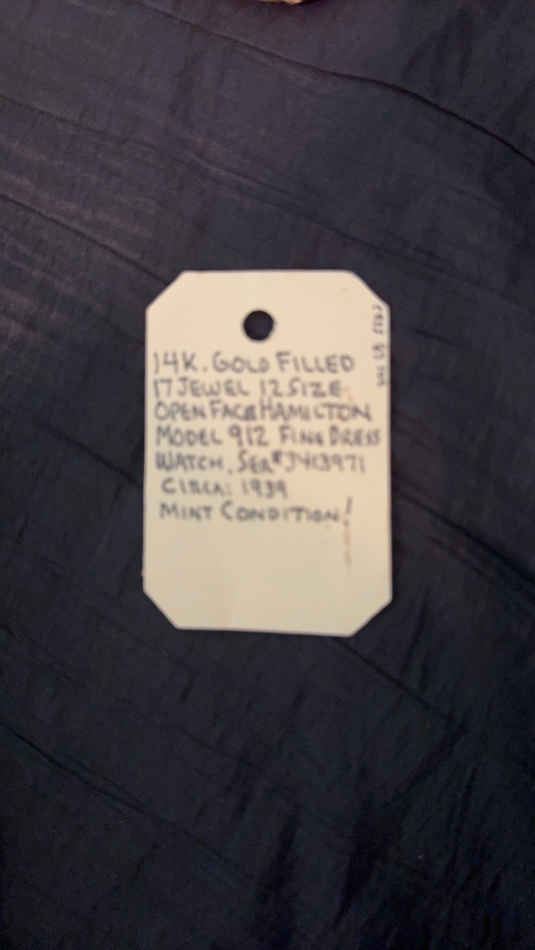 14K. GOLD FILLED
17 JEWEL 12 SIZE
OPEN FACE HAMILTON
MODEL 912 FINE DRESS
WATCH. SER# J413971
CIRCA: 1939
MINT CONDITION!